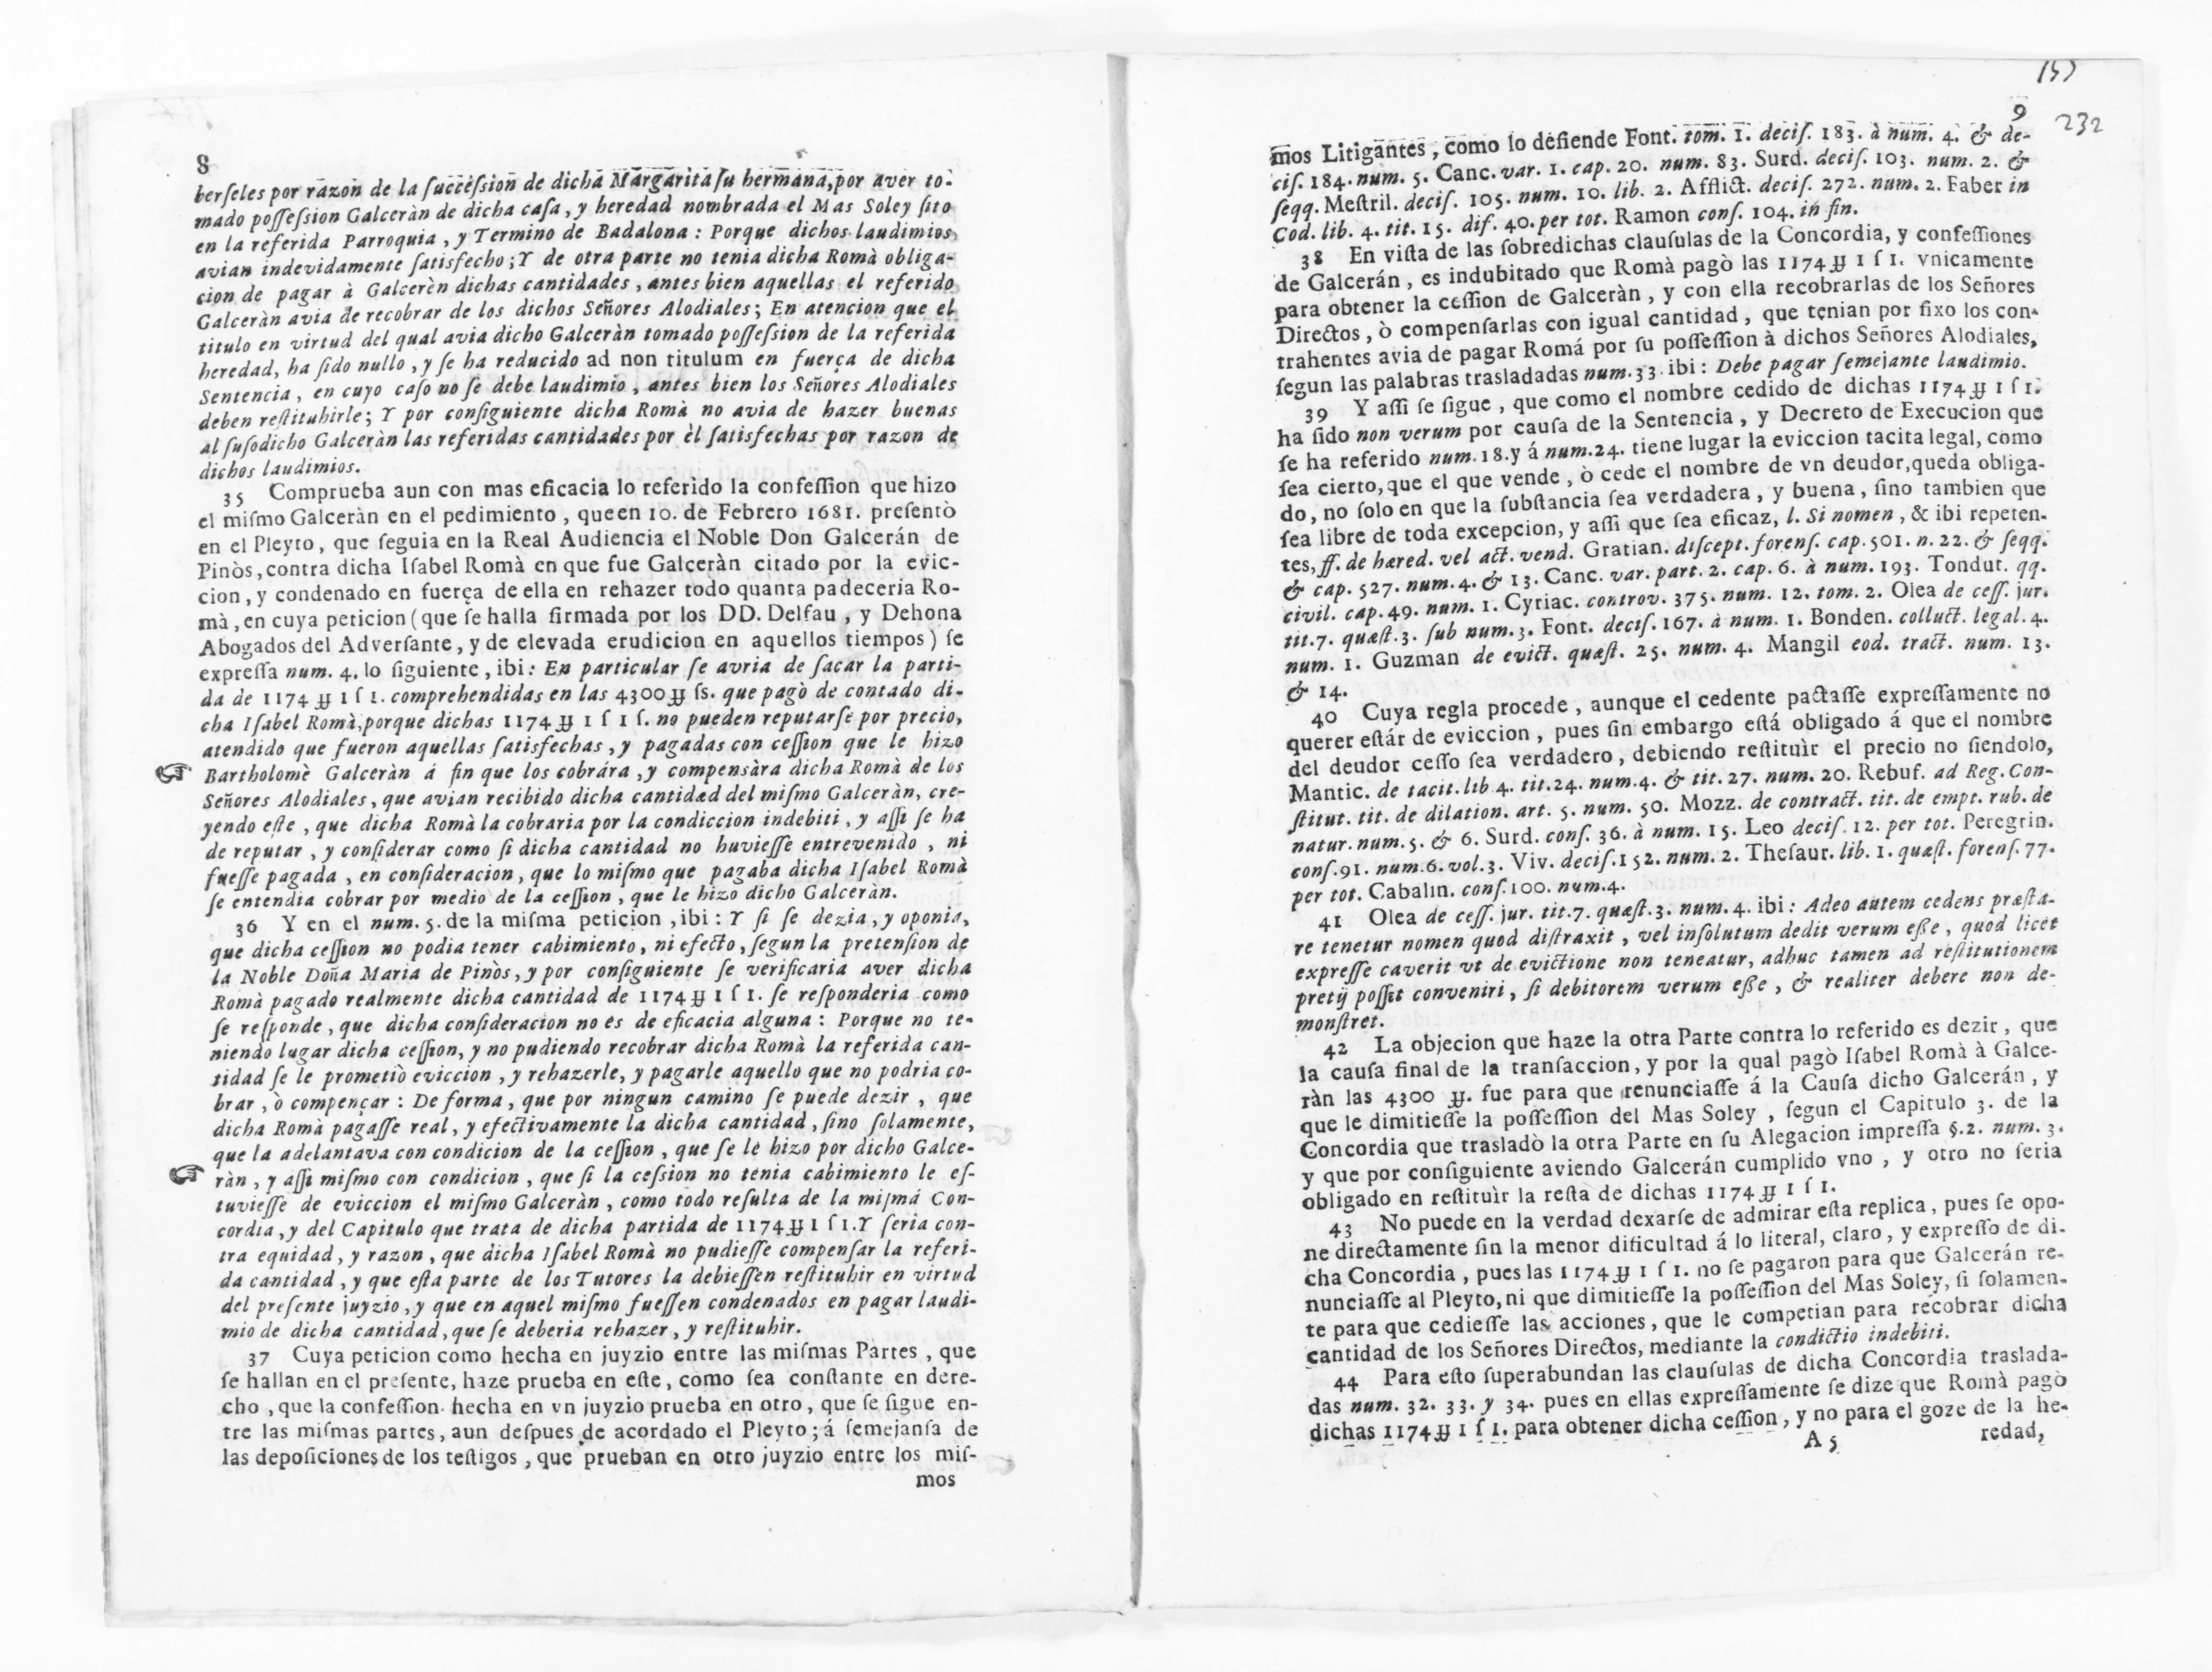 8
berſeles por razon de la ſucceſsion de dicha Margarita ſu hermana, por aver to-
mado poſſeſsion Galceràn de dicha caſa, y heredad nombrada el Mas Soley ſito
en la referida Parroquia, y Termino de Badalona: Porque dichos laudimios
avian indevidamente ſatisfecho; Y de otra parte no tenia dicha Romà obliga-
cion de pagar à Galcerèn dichas cantidades, antes bien aquellas el referido
Galceràn avia de recobrar de los dichos Señores Alodiales; En atencion que el
titulo en virtud del qual avia dicho Galceràn tomado poſſeſsion de la referida
heredad, ha ſido nullo, y ſe ha reducido ad non titulum en fuerça de dicha
Sentencia, en cuyo caſo no ſe debe laudimio, antes bien los Señores Alodiales
deben reſtituhirle; Y por conſiguiente dicha Romà no avia de hazer buenas
al ſuſodicho Galceràn las referidas cantidades por èl ſatisfechas por razon de
dichos laudimios.
35 Comprueba aun con mas eficacia lo referido la confeſſion que hizo
el miſmo Galceràn en el pedimiento, que en 10. de Febrero 1681. preſentò
en el Pleyto, que ſeguia en la Real Audiencia el Noble Don Galcerán de
Pinòs, contra dicha Iſabel Romà en que fue Galceràn citado por la evic-
cion, y condenado en fuerça de ella en rehazer todo quanta padeceria Ro-
mà, en cuya peticion (que ſe halla firmada por los DD. Delfau, y Dehona
Abogados del Adverſante, y de elevada erudicion en aquellos tiempos) ſe
expreſſa num. 4. lo ſiguiente, ibi: En particular ſe avria de ſacar la parti-
da de 1174 ℔ 1 ſ 1. comprehendidas en las 4300 ℔ ſs. que pagò de contado di-
cha Iſabel Romà, porque dichas 1174 ℔ 1 ſ 1 ſ. no pueden reputarſe por precio,
atendido que fueron aquellas ſatisfechas, y pagadas con ceſſion que le hizo
Bartholomè Galceràn á fin que los cobrára, y compensàra dicha Romà de los
Señores Alodiales, que avian recibido dicha cantidad del miſmo Galceràn, cre-
yendo eſte, que dicha Romà la cobraria por la condiccion indebiti, y aſſi ſe ha
de reputar, y conſiderar como ſi dicha cantidad no huvieſſe entrevenido, ni
fueſſe pagada, en conſideracion, que lo miſmo que pagaba dicha Iſabel Romà
ſe entendia cobrar por medio de la ceſſion, que le hizo dicho Galceràn.
36 Y en el num. 5. de la miſma peticion, ibi: Y ſi ſe dezia, y oponia,
que dicha ceſſion no podia tener cabimiento, ni efecto, ſegun la pretenſion de
la Noble Doña Maria de Pinòs, y por conſiguiente ſe verificaria aver dicha
Romà pagado realmente dicha cantidad de 1174 ℔ 1 ſ 1. ſe reſponderia como
ſe reſponde, que dicha conſideracion no es de eficacia alguna: Porque no te-
niendo lugar dicha ceſſion, y no pudiendo recobrar dicha Romà la referida can-
tidad ſe le prometiò eviccion, y rehazerle, y pagarle aquello que no podria co-
brar, ò compençar: De forma, que por ningun camino ſe puede dezir, que
dicha Romà pagaſſe real, y efectivamente la dicha cantidad, ſino ſolamente,
que la adelantava con condicion de la ceſſion, que ſe le hizo por dicho Galce-
ràn, y aſſi miſmo con condicion, que ſi la ceſsion no tenia cabimiento le eſ-
tuvieſſe de eviccion el miſmo Galceràn, como todo reſulta de la miſmá Con-
cordia, y del Capitulo que trata de dicha partida de 1174 ℔ 1 ſ 1. Y ſeria con-
tra equidad, y razon, que dicha Iſabel Romà no pudieſſe compenſar la referi-
da cantidad, y que eſta parte de los Tutores la debieſſen reſtituhir en virtud
del preſente juyzio, y que en aquel miſmo fueſſen condenados en pagar laudi-
mio de dicha cantidad, que ſe deberia rehazer, y reſtituhir.
37 Cuya peticion como hecha en juyzio entre las miſmas Partes, que
ſe hallan en el preſente, haze prueba en eſte, como ſea conſtante en dere-
cho, que la confeſſion hecha en vn juyzio prueba en otro, que ſe ſigue en-
tre las miſmas partes, aun deſpues de acordado el Pleyto; á ſemejanſa de
las depoſiciones de los teſtigos, que prueban en otro juyzio entre los miſ-
mos
157
9
232
mos Litigantes, como lo defiende Font. tom. 1. deciſ. 183. à num. 4. & de-
ciſ. 184. num. 5. Canc. var. 1. cap. 20. num. 83. Surd. deciſ. 103. num. 2. &
ſeqq. Meſtril. deciſ. 105. num. 10. lib. 2. Afflict. deciſ. 272. num. 2. Faber in
Cod. lib. 4. tit. 15. diſ. 40. per tot. Ramon conſ. 104. in fin.
38 En viſta de las ſobredichas clauſulas de la Concordia, y confeſſiones
de Galcerán, es indubitado que Romà pagò las 1174 ℔ 1 ſ 1. vnicamente
para obtener la ceſſion de Galceràn, y con ella recobrarlas de los Señores
Directos, ò compenſarlas con igual cantidad, que tenian por fixo los con-
trahentes avia de pagar Romá por ſu poſſeſſion à dichos Señores Alodiales,
ſegun las palabras trasladadas num. 33. ibi: Debe pagar ſemejante laudimio.
39 Y aſſi ſe ſigue, que como el nombre cedido de dichas 1174 ℔ 1 ſ 1.
ha ſido non verum por cauſa de la Sentencia, y Decreto de Execucion que
ſe ha referido num. 18. y á num. 24. tiene lugar la eviccion tacita legal, como
ſea cierto, que el que vende, ò cede el nombre de vn deudor, queda obliga-
do, no ſolo en que la ſubſtancia ſea verdadera, y buena, ſino tambien que
ſea libre de toda excepcion, y aſſi que ſea eficaz, l. Si nomen, & ibi repeten-
tes, ff. de hæred. vel act. vend. Gratian. diſcept. forenſ. cap. 501. n. 22. & ſeqq.
& cap. 527. num. 4. & 13. Canc. var. part. 2. cap. 6. à num. 193. Tondut. qq.
civil. cap. 49. num. 1. Cyriac. controv. 375. num. 12. tom. 2. Olea de ceſſ. jur.
tit. 7. quæſt. 3. ſub num. 3. Font. deciſ. 167. à num. 1. Bonden. colluct. legal. 4.
num. 1. Guzman de evict. quæſt. 25. num. 4. Mangil eod. tract. num. 13.
& 14.
40 Cuya regla procede, aunque el cedente pactaſſe expreſſamente no
querer eſtár de eviccion, pues ſin embargo eſtá obligado á que el nombre
del deudor ceſſo ſea verdadero, debiendo reſtituìr el precio no ſiendolo,
Mantic. de tacit. lib 4. tit. 24. num. 4. & tit. 27. num. 20. Rebuf. ad Reg. Con-
ſtitut. tit. de dilation. art. 5. num. 50. Mozz. de contract. tit. de empt. rub. de
natur. num. 5. & 6. Surd. conſ. 36. à num. 15. Leo deciſ. 12. per tot. Peregrin.
conſ. 91. num. 6. vol. 3. Viv. deciſ. 152. num. 2. Theſaur. lib. 1. quæſt. forenſ. 77.
per tot. Cabalin. conſ. 100. num. 4.
41 Olea de ceſſ. jur. tit. 7. quæſt. 3. num. 4. ibi: Adeo autem cedens præſta-
re tenetur nomen quod diſtraxit, vel inſolutum dedit verum eße, quod licet
expreſſe caverit vt de evictione non teneatur, adhuc tamen ad reſtitutionem
pretij poſſet conveniri, ſi debitorem verum eße, & realiter debere non de-
monſtret.
42 La objecion que haze la otra Parte contra lo referido es dezir, que
la cauſa final de la tranſaccion, y por la qual pagò Iſabel Romà à Galce-
ràn las 4300 ℔. fue para que renunciaſſe á la Cauſa dicho Galcerán, y
que le dimitieſſe la poſſeſſion del Mas Soley, ſegun el Capitulo 3. de la
Concordia que trasladò la otra Parte en ſu Alegacion impreſſa §. 2. num. 3.
y que por conſiguiente aviendo Galcerán cumplido vno, y otro no ſeria
obligado en reſtituìr la reſta de dichas 1174 ℔ 1 ſ 1.
43 No puede en la verdad dexarſe de admirar eſta replica, pues ſe opo-
ne directamente ſin la menor dificultad á lo literal, claro, y expreſſo de di-
cha Concordia, pues las 1174 ℔ 1 ſ 1. no ſe pagaron para que Galcerán re-
nunciaſſe al Pleyto, ni que dimitieſſe la poſſeſſion del Mas Soley, ſi ſolamen-
te para que cedieſſe las acciones, que le competian para recobrar dicha
cantidad de los Señores Directos, mediante la condictio indebiti.
44 Para eſto ſuperabundan las clauſulas de dicha Concordia traslada-
das num. 32. 33. y 34. pues en ellas expreſſamente ſe dize que Romà pagò
dichas 1174 ℔ 1 ſ 1. para obtener dicha ceſſion, y no para el goze de la he-
A 5
redad,